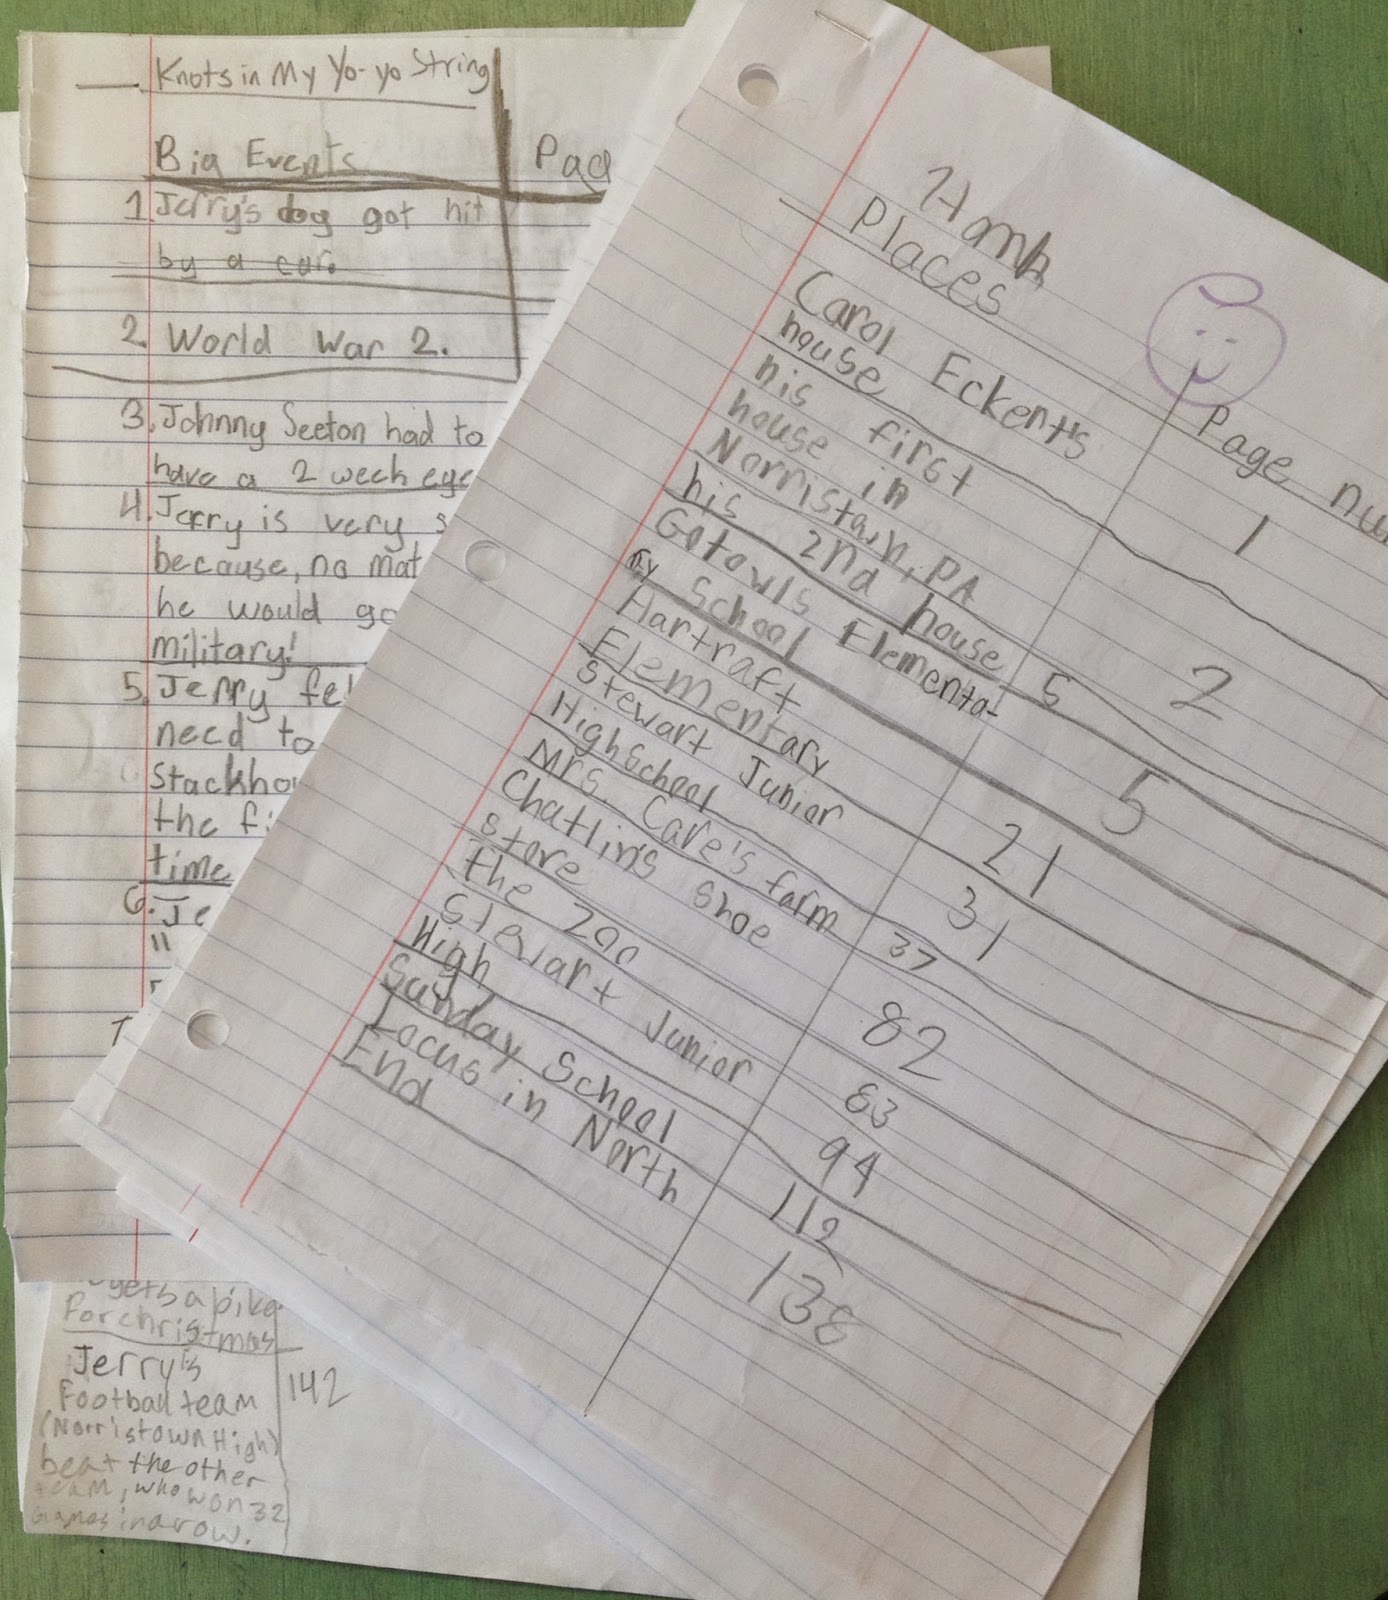 Knots in My Yo-yo String
Big Events
1. Jerry's dog got hit
by a car.
2. World War 2.
3. Johnny Seeton had to
have a 2 week eye
4. Jerry is very s
because, no mat
he would go
military!
5. Jerry fel
need to
stackhou
the fi
time
6. Je
Hank
Places
Page nu
Carol Eckert's
house
1
his first
house in
Norristown, PA
2
his 2nd house
5
Gotowls Elementa-
ry School
5
Hartraft
Elementary
21
Stewart Junior
High School
31
Mrs. Care's farm
37
Chatlin's shoe
store
82
the zoo
83
Stewart Junior
High
94
Sunday School
112
Locus in North
End
138
gets a bike
For christmas
Jerry's
Football team
(Norristown High)
beat the other
team, who won 32
Games in a row.
142